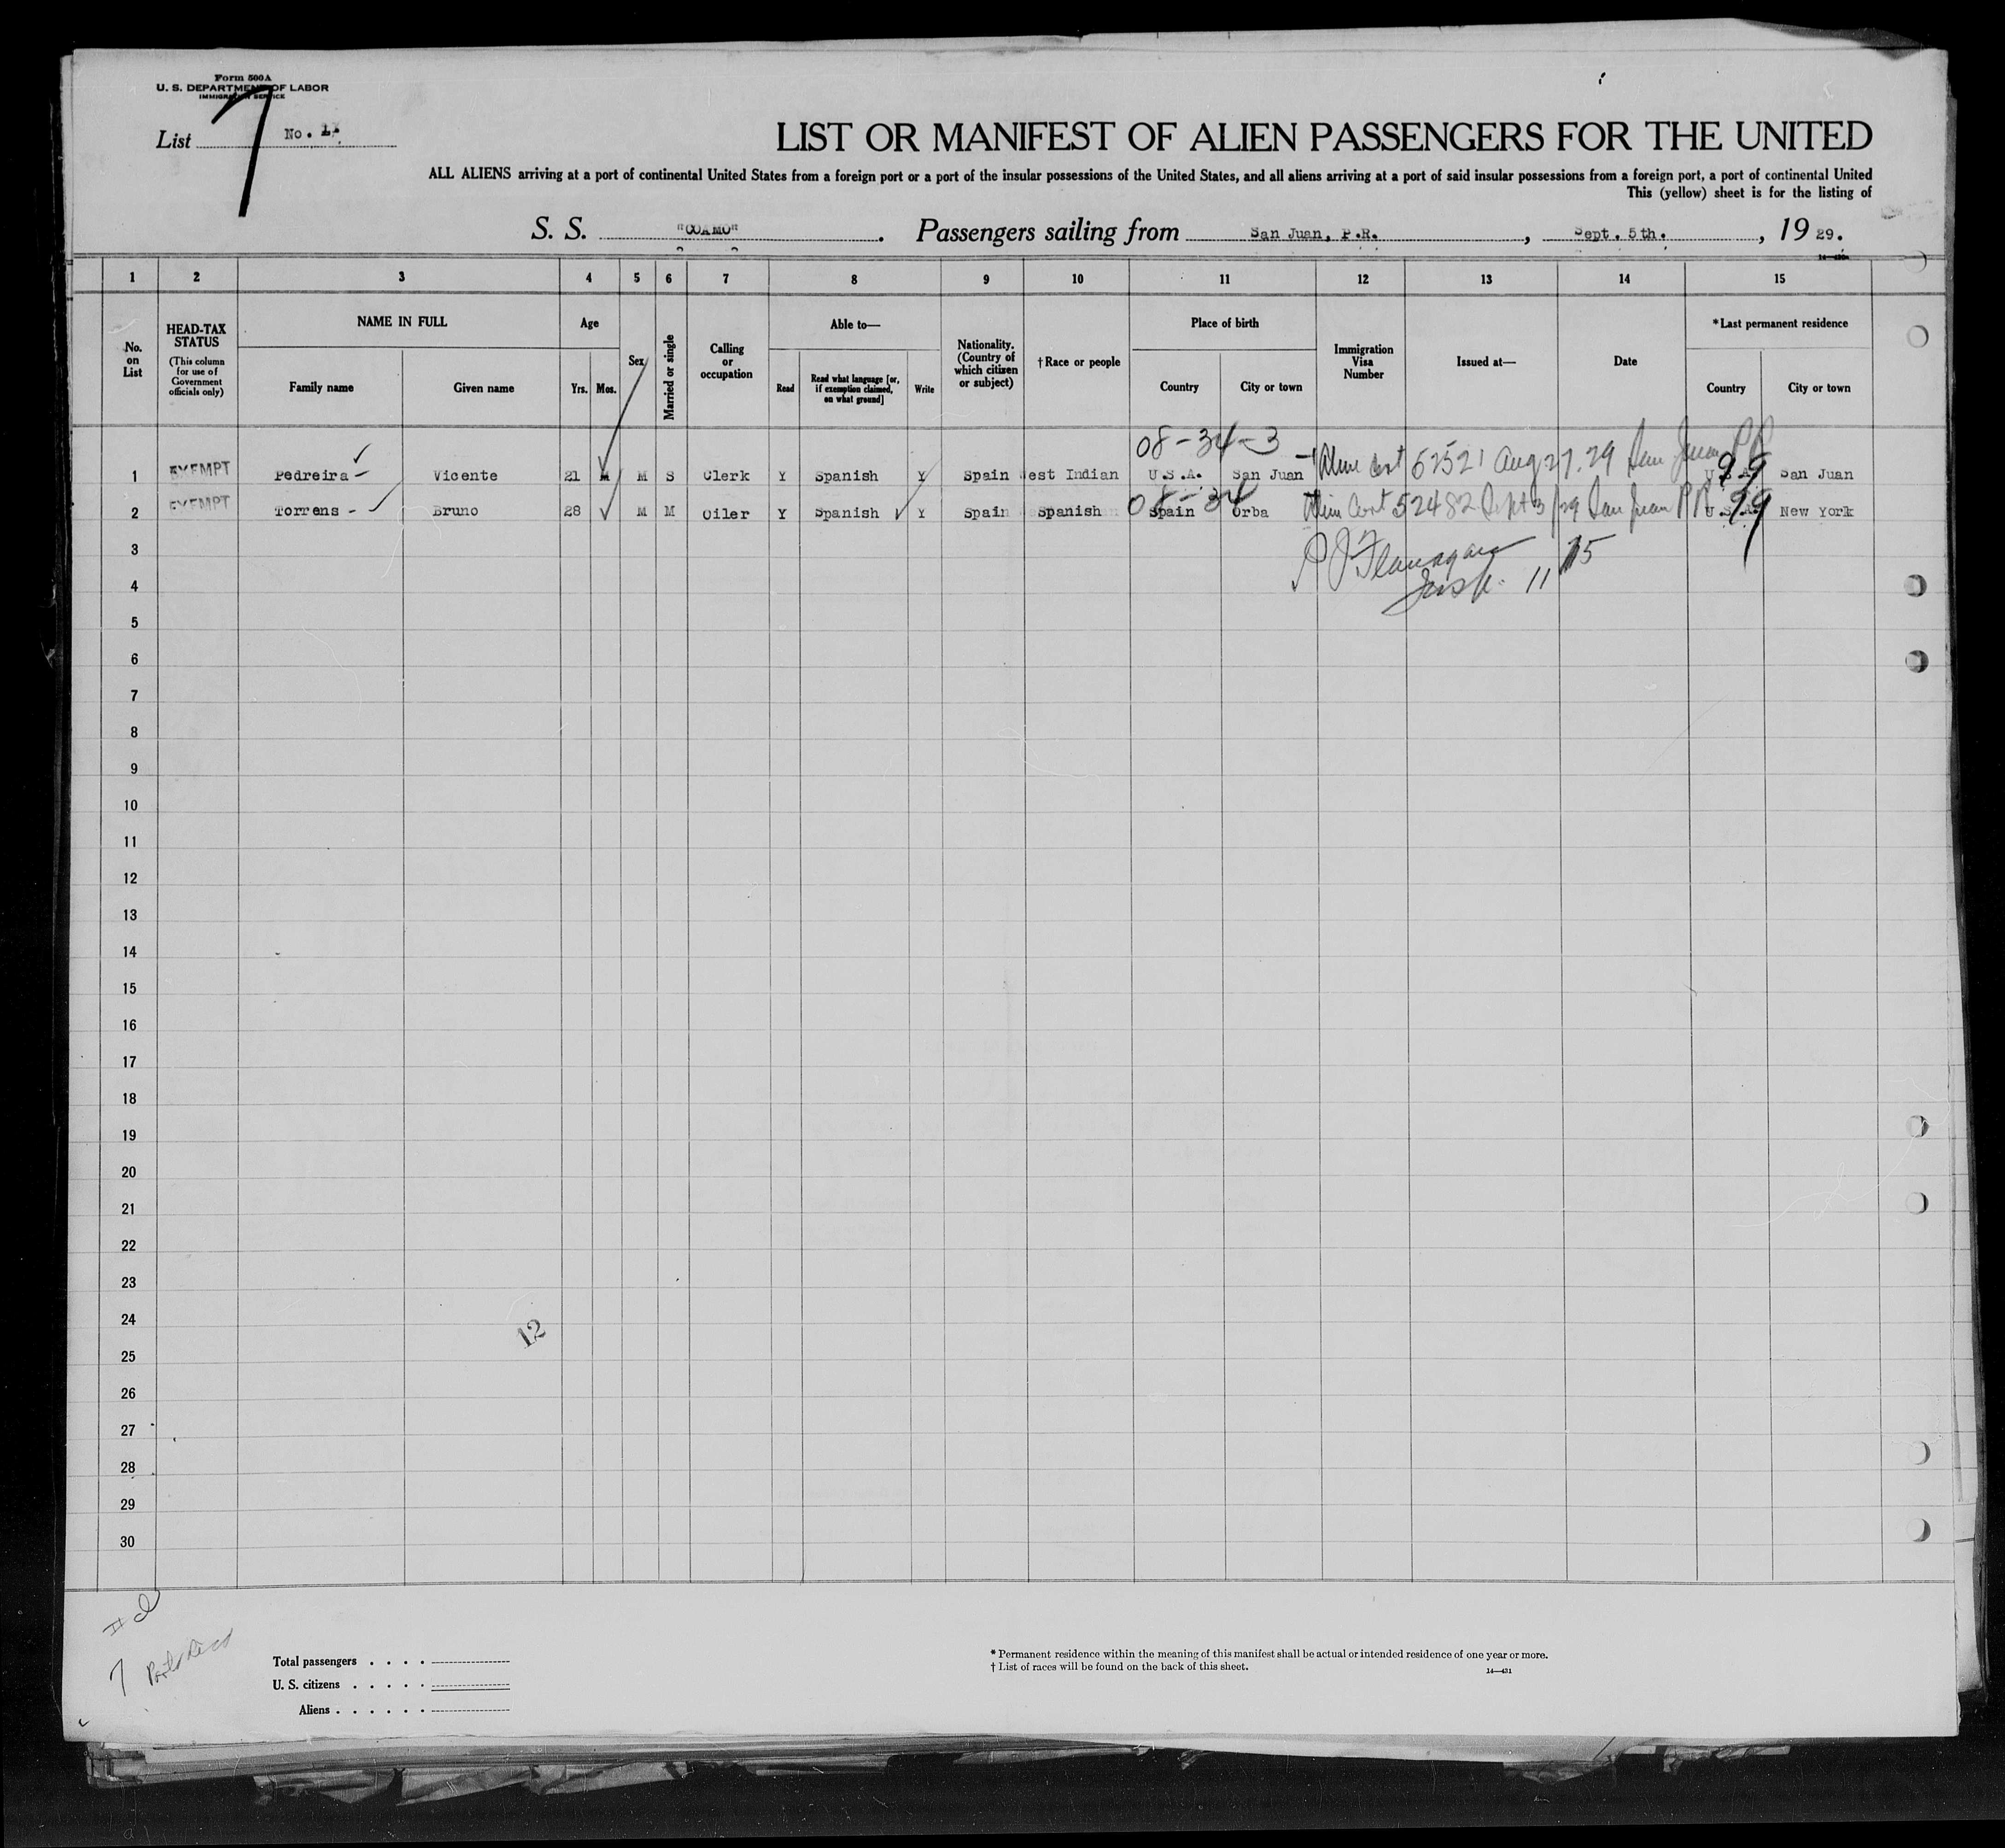 Form 500A
U. S. DEPARTMENT OF LABOR
IMMIGRATION SERVICE
List 7 No.
LIST OR MANIFEST OF ALIEN PASSENGERS FOR THE UNITED
ALL ALIENS arriving at a port of continental United States from a foreign port or a port of the insular possessions of the United States, and all aliens arriving at a port of said insular possessions from a foreign port, a port of continental United
This (yellow) sheet is for the listing of
S. S. "COAMO". Passengers sailing from San Juan, P.R., Sept. 5th., 1929.
1 2 3 4 5 6 7 8 9 10 11 12 13 14 15
No. on List
HEAD-TAX STATUS (This column for use of Government officials only)
NAME IN FULL
Family name Given name
Age
Yrs. Mos.
Sex
Married or single
Calling or occupation
Able to—
Read Read what language [or, if exemption claimed, on what ground] Write
Nationality. (Country of which citizen or subject)
†Race or people
Place of birth
Country City or town
Immigration Visa Number
Issued at—
Date
*Last permanent residence
Country City or town
08-34-3
1 EXEMPT Pedreira Vicente 21 M M S Clerk Y Spanish Y Spain West Indian U.S.A. San Juan Cert 52521 Aug 27.29 San Juan P R U.S.A. 99 San Juan
08-34
2 EXEMPT Torrens Bruno 28 M M Oiler Y Spanish Y Spain Spanish Spain Orba Cert 52482 Sept 3/29 San Juan P R U.S.A. 99 New York
3
P J Flanagan 115
4
Insp. 11
5
6
7
8
9
10
11
12
13
14
15
16
17
18
19
20
21
22
23
24
12
25
26
27
28
29
30
7 Porto Rico
Total passengers . . . .
U. S. citizens . . . . .
Aliens . . . . . .
* Permanent residence within the meaning of this manifest shall be actual or intended residence of one year or more.
† List of races will be found on the back of this sheet.
14—431